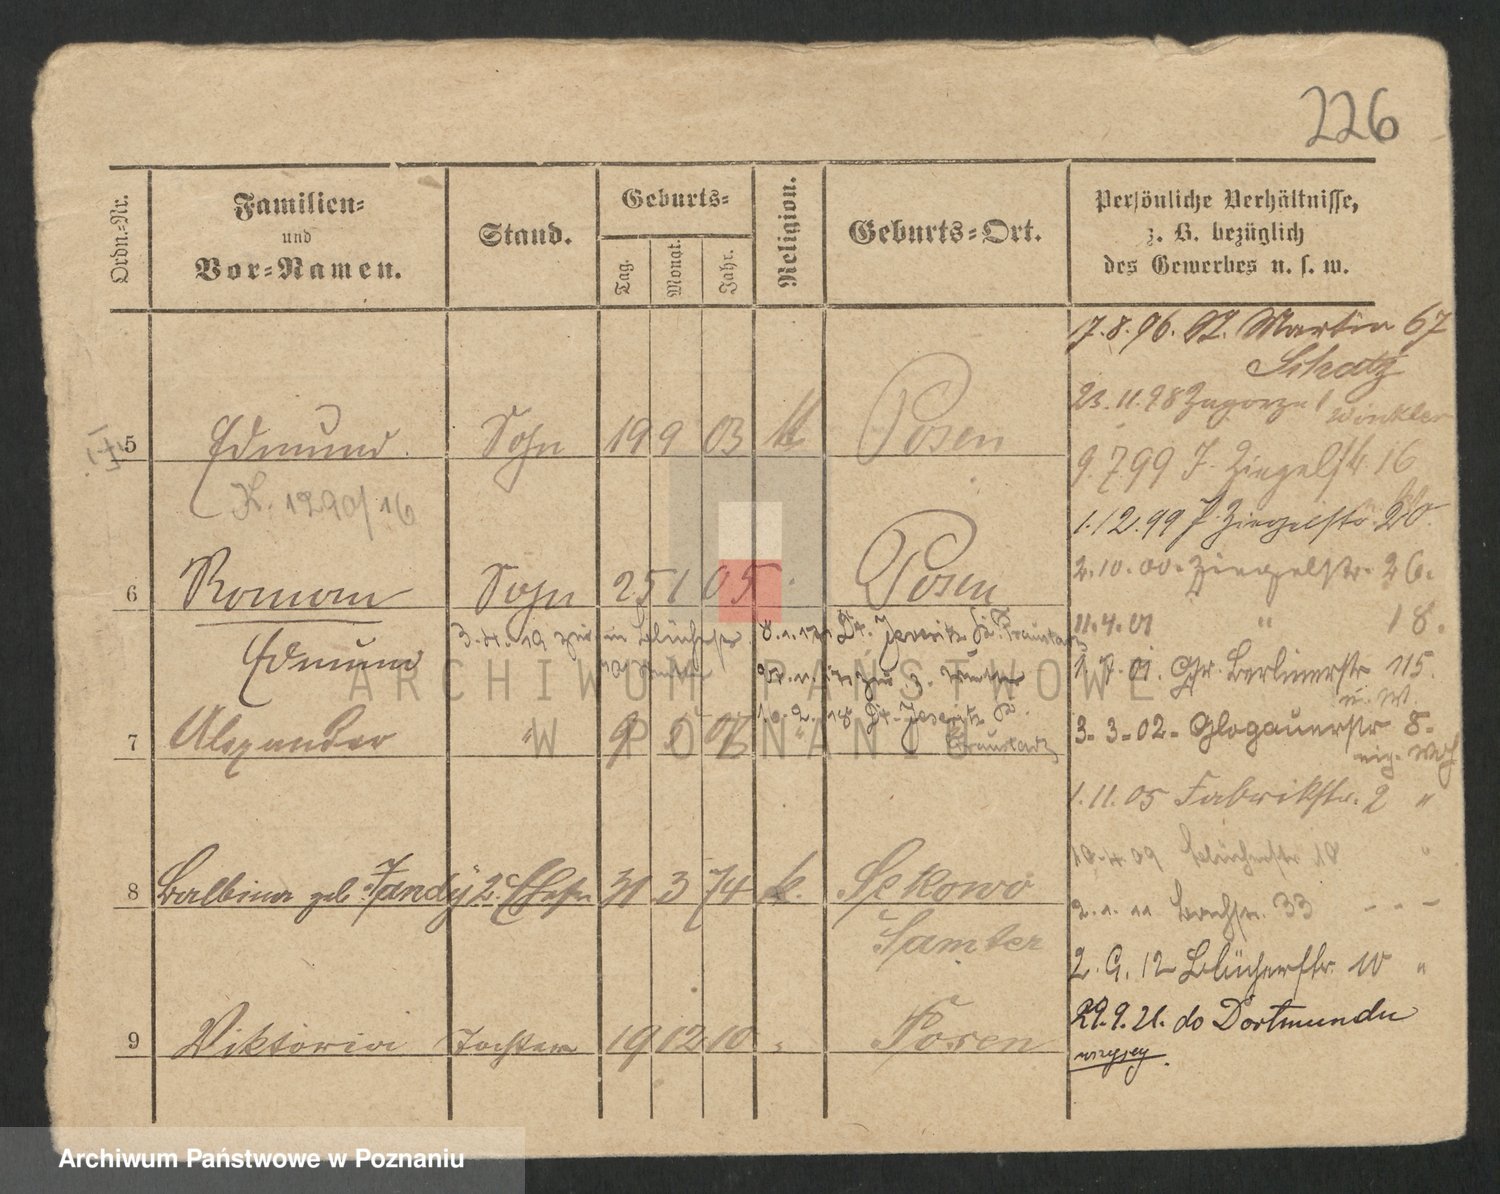 226
Ordn.-Nr.
Familien-
und
Vor-Namen.
Stand.
Geburts-
Tag.
Monat.
Jahr.
Religion.
Geburts-Ort.
Persönliche Verhältnisse,
z. B. bezüglich
des Gewerbes u. s. w.
17.8.96. St. Martin 67
Schatz
23.11.98 Zagorze 1 Winkler
5 Edmund Sohn 19 9 03 k Posen
9.7.99 J. Ziegelstr. 16
K. 1290/16
1.12.99 J. Ziegelstr.
2.10.00. Ziegelstr. 26.
6 Roman Sohn 25 1 05 Posen
11.4.01 " 18.
Edmund
1.7.01. Gr. Berlinerstr. 115.
u. W.
7 Alexander " 9
3.3.02. Glogauerstr 8.
eig. Wohg.
1.11.05 Fabrikstr. 2 "
10.4.09 Blücherstr 10 "
8 Balbina geb. Jandy 2. Ehefr. 31 3 74 k. Sekowo
Samter
2.1.11 Bachstr. 33
2.9.12 Blücherstr. 10 "
29.9.21. do Dortmundu
wszyscy.
9 Viktoria Tochter 19 12 10 Posen
ARCHIWUM PAŃSTWOWE
W POZNANIU
Archiwum Państwowe w Poznaniu